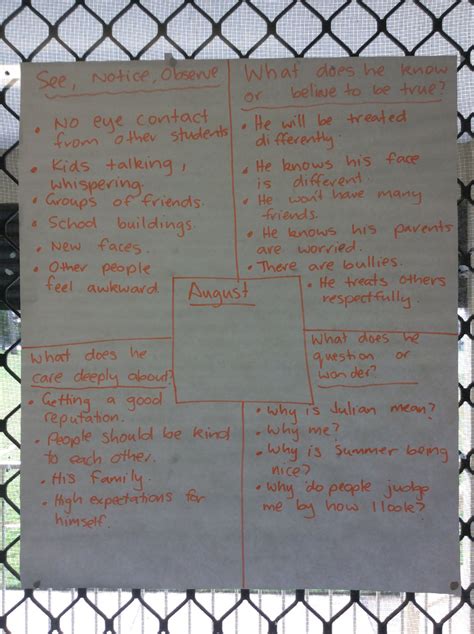 See, Notice, Observe
• No eye contact
from other students
• Kids talking,
whispering.
• Groups of friends.
• School buildings.
• New faces.
• Other people
feel awkward
What does he know
or believe to be true?
• He will be treated
differently.
• He knows his face
is different.
• He won't have many
friends.
• He knows his parents
are worried.
• There are bullies.
• He treats others
respectfully.
August
What does he
care deeply about?
• Getting a good
reputation.
• People should be kind
to each other.
• His family.
• High expectations for
himself.
What does he
question or
wonder?
• Why is Julian mean?
• Why me?
• Why is Summer being
nice?
• Why do people judge
me by how I look?